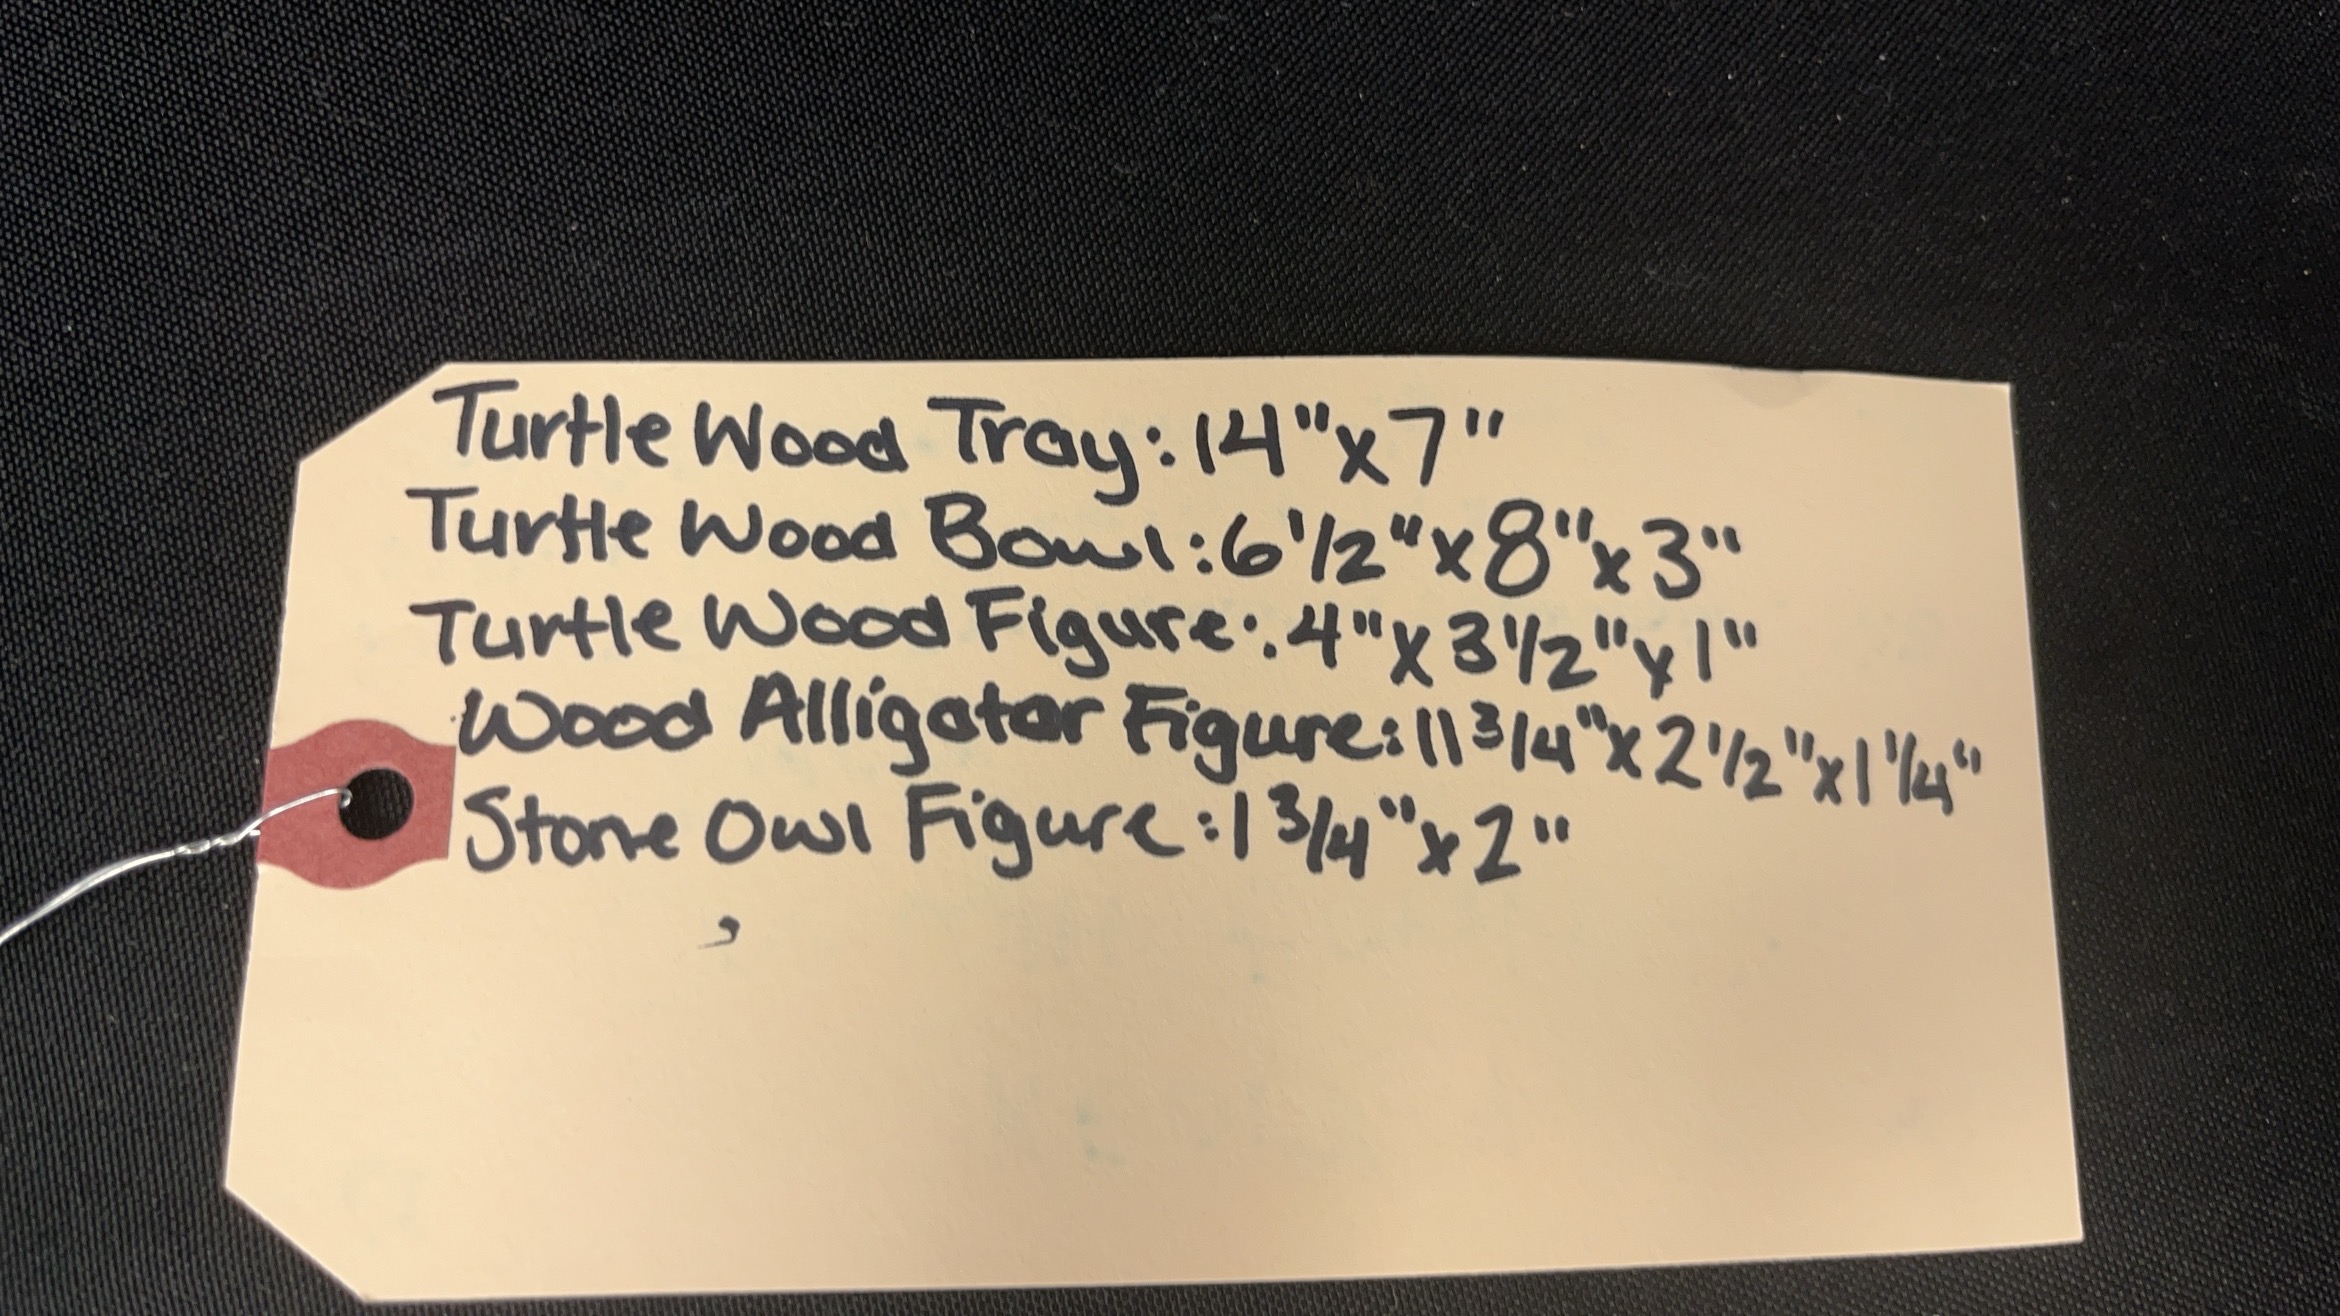 Turtle Wood Tray: 14" x 7"
Turtle Wood Bowl: 6 1/2" x 8" x 3"
Turtle Wood Figure: 4" x 3 1/2" x 1"
Wood Alligator Figure: 11 3/4" x 2 1/2" x 1 1/4"
Stone Owl Figure: 1 3/4" x 2"